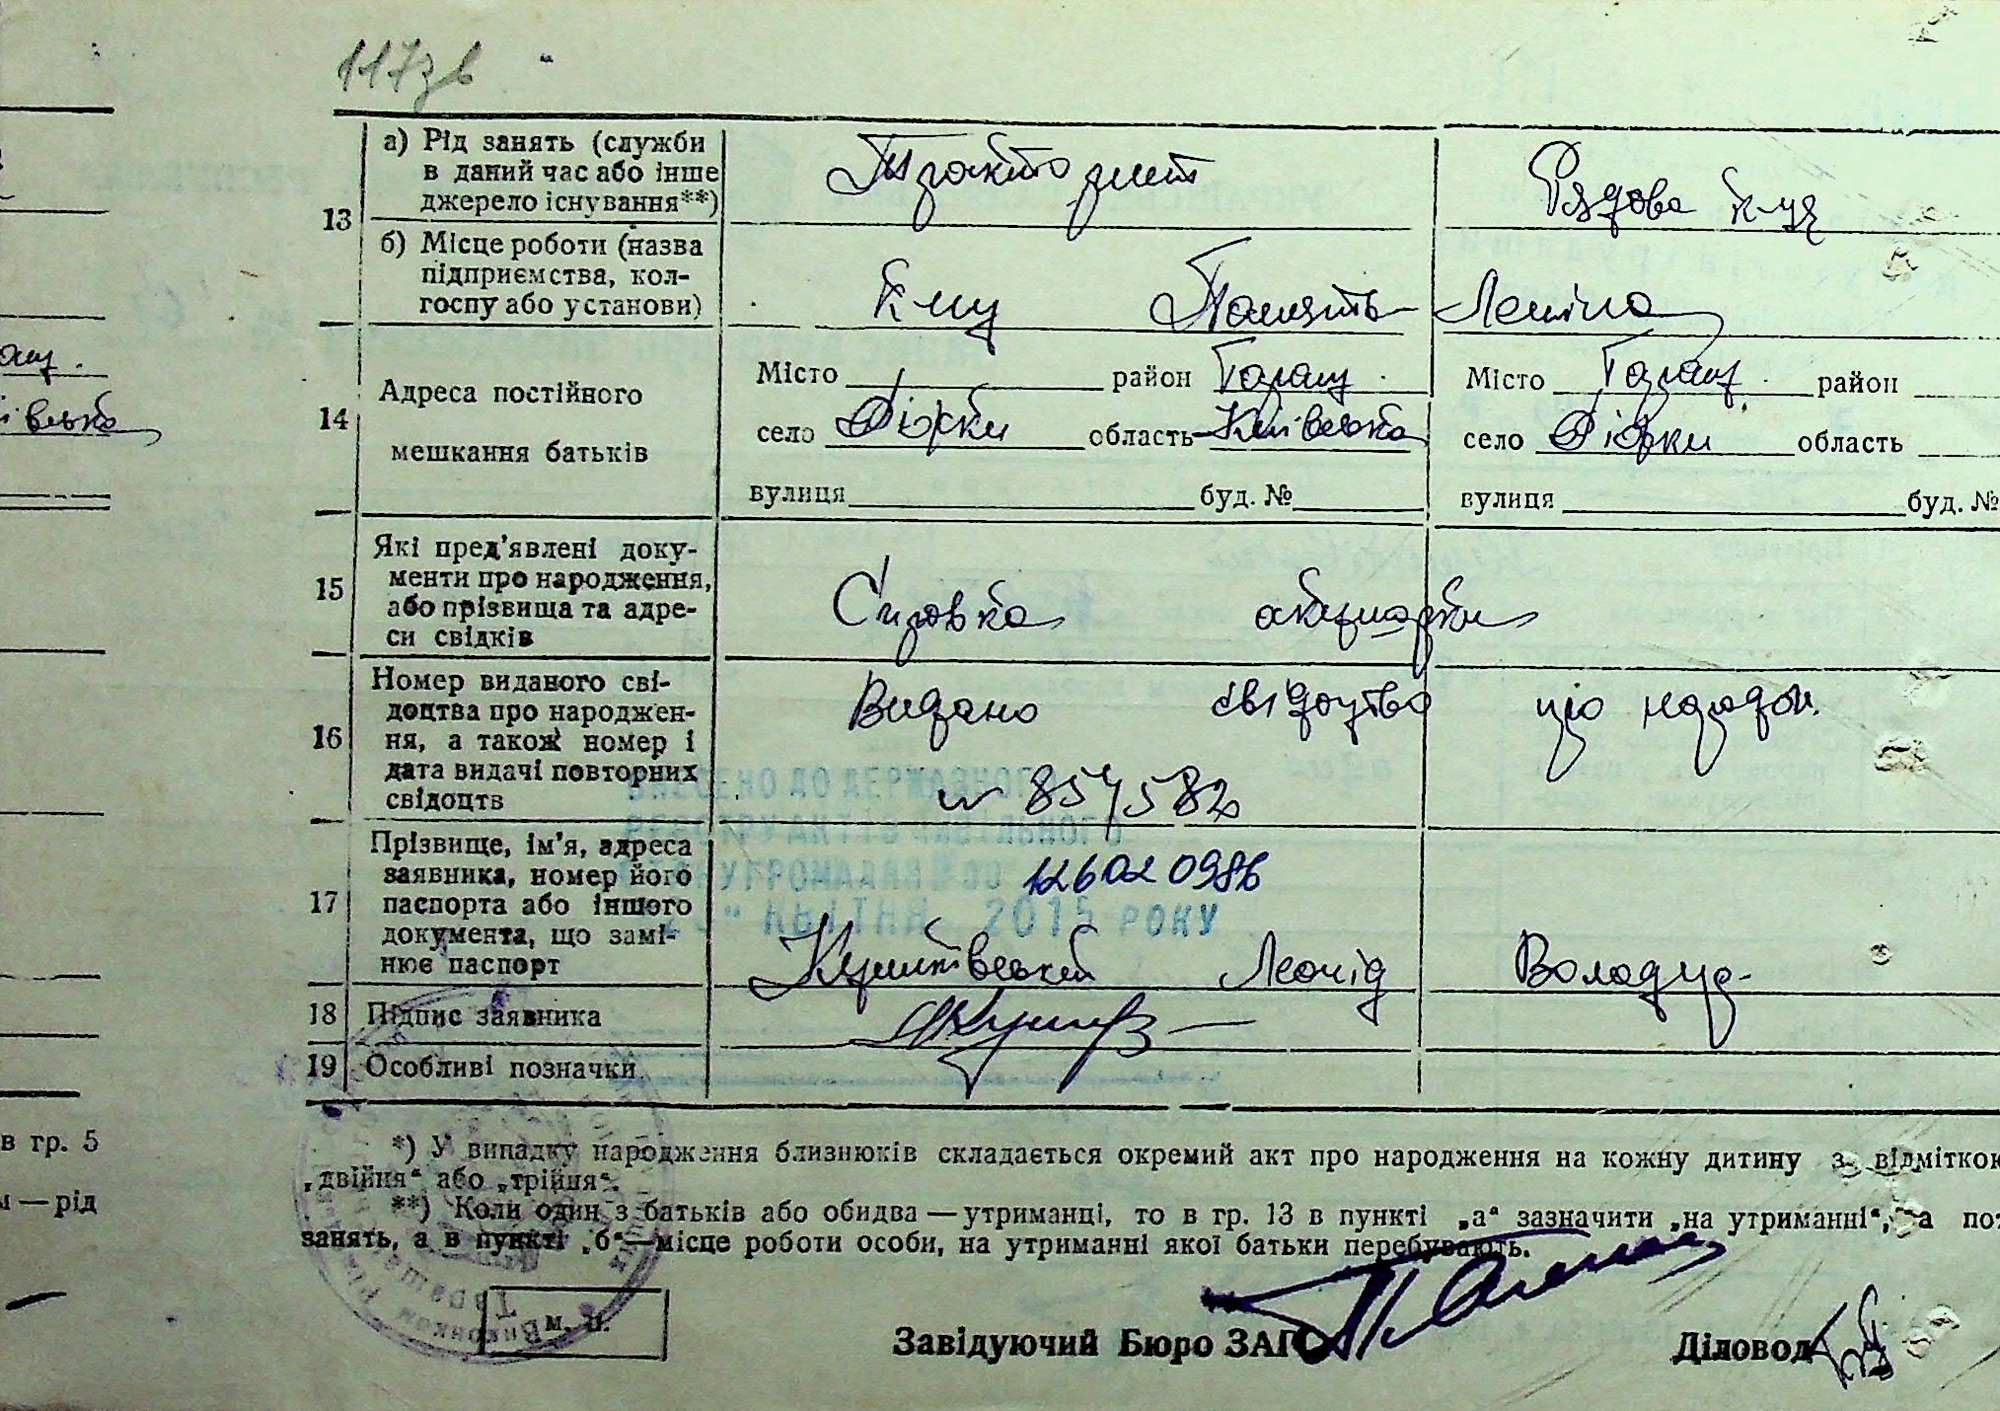 117зв
13 а) Рід занять (служби в даний час або інше джерело існування**) Тракторист Рядова к-ця
б) Місце роботи (назва підприємства, колгоспу або установи) К-пу Память Леніна
14 Адреса постійного мешкання батьків
Місто район Таращ. Місто Таращ. район
село Лісові області Київська
село область
вулиця буд. № вулиця буд. №
15 Які пред'явлені документи про народження, або прізвища та адреси свідків Справка акушарки
16 Номер виданого свідоцтва про народження, а також номер і дата видачі повторних свідоцтв Видано свідоцтво про народж.
№ 857582
ВНЕСЕНО ДО ДЕРЖАВНОГО
РЕЄСТРУ АКТІВ ЦИВІЛЬНОГО
СТАНУ ГРОМАДЯН ЗА № 12602 0986
КВІТНЯ 2015 РОКУ
17 Прізвище, ім'я, адреса заявника, номер його паспорта або іншого документа, що замінює паспорт Леонід Володир-
18 Підпис заявника
19 Особливі позначки
*) У випадку народження близнюків складається окремий акт про народження на кожну дитину з відміткою
„двійня“ або „трійня“.
**) Коли один з батьків або обидва — утриманці, то в гр. 13 в пункті „а“ зазначити „на утриманні“, а пот
занять, а в пункті „б“ — місце роботи особи, на утриманні якої батьки перебувають.
м. п.
Завідуючий Бюро ЗАГС Діловод
в гр. 5
— рід